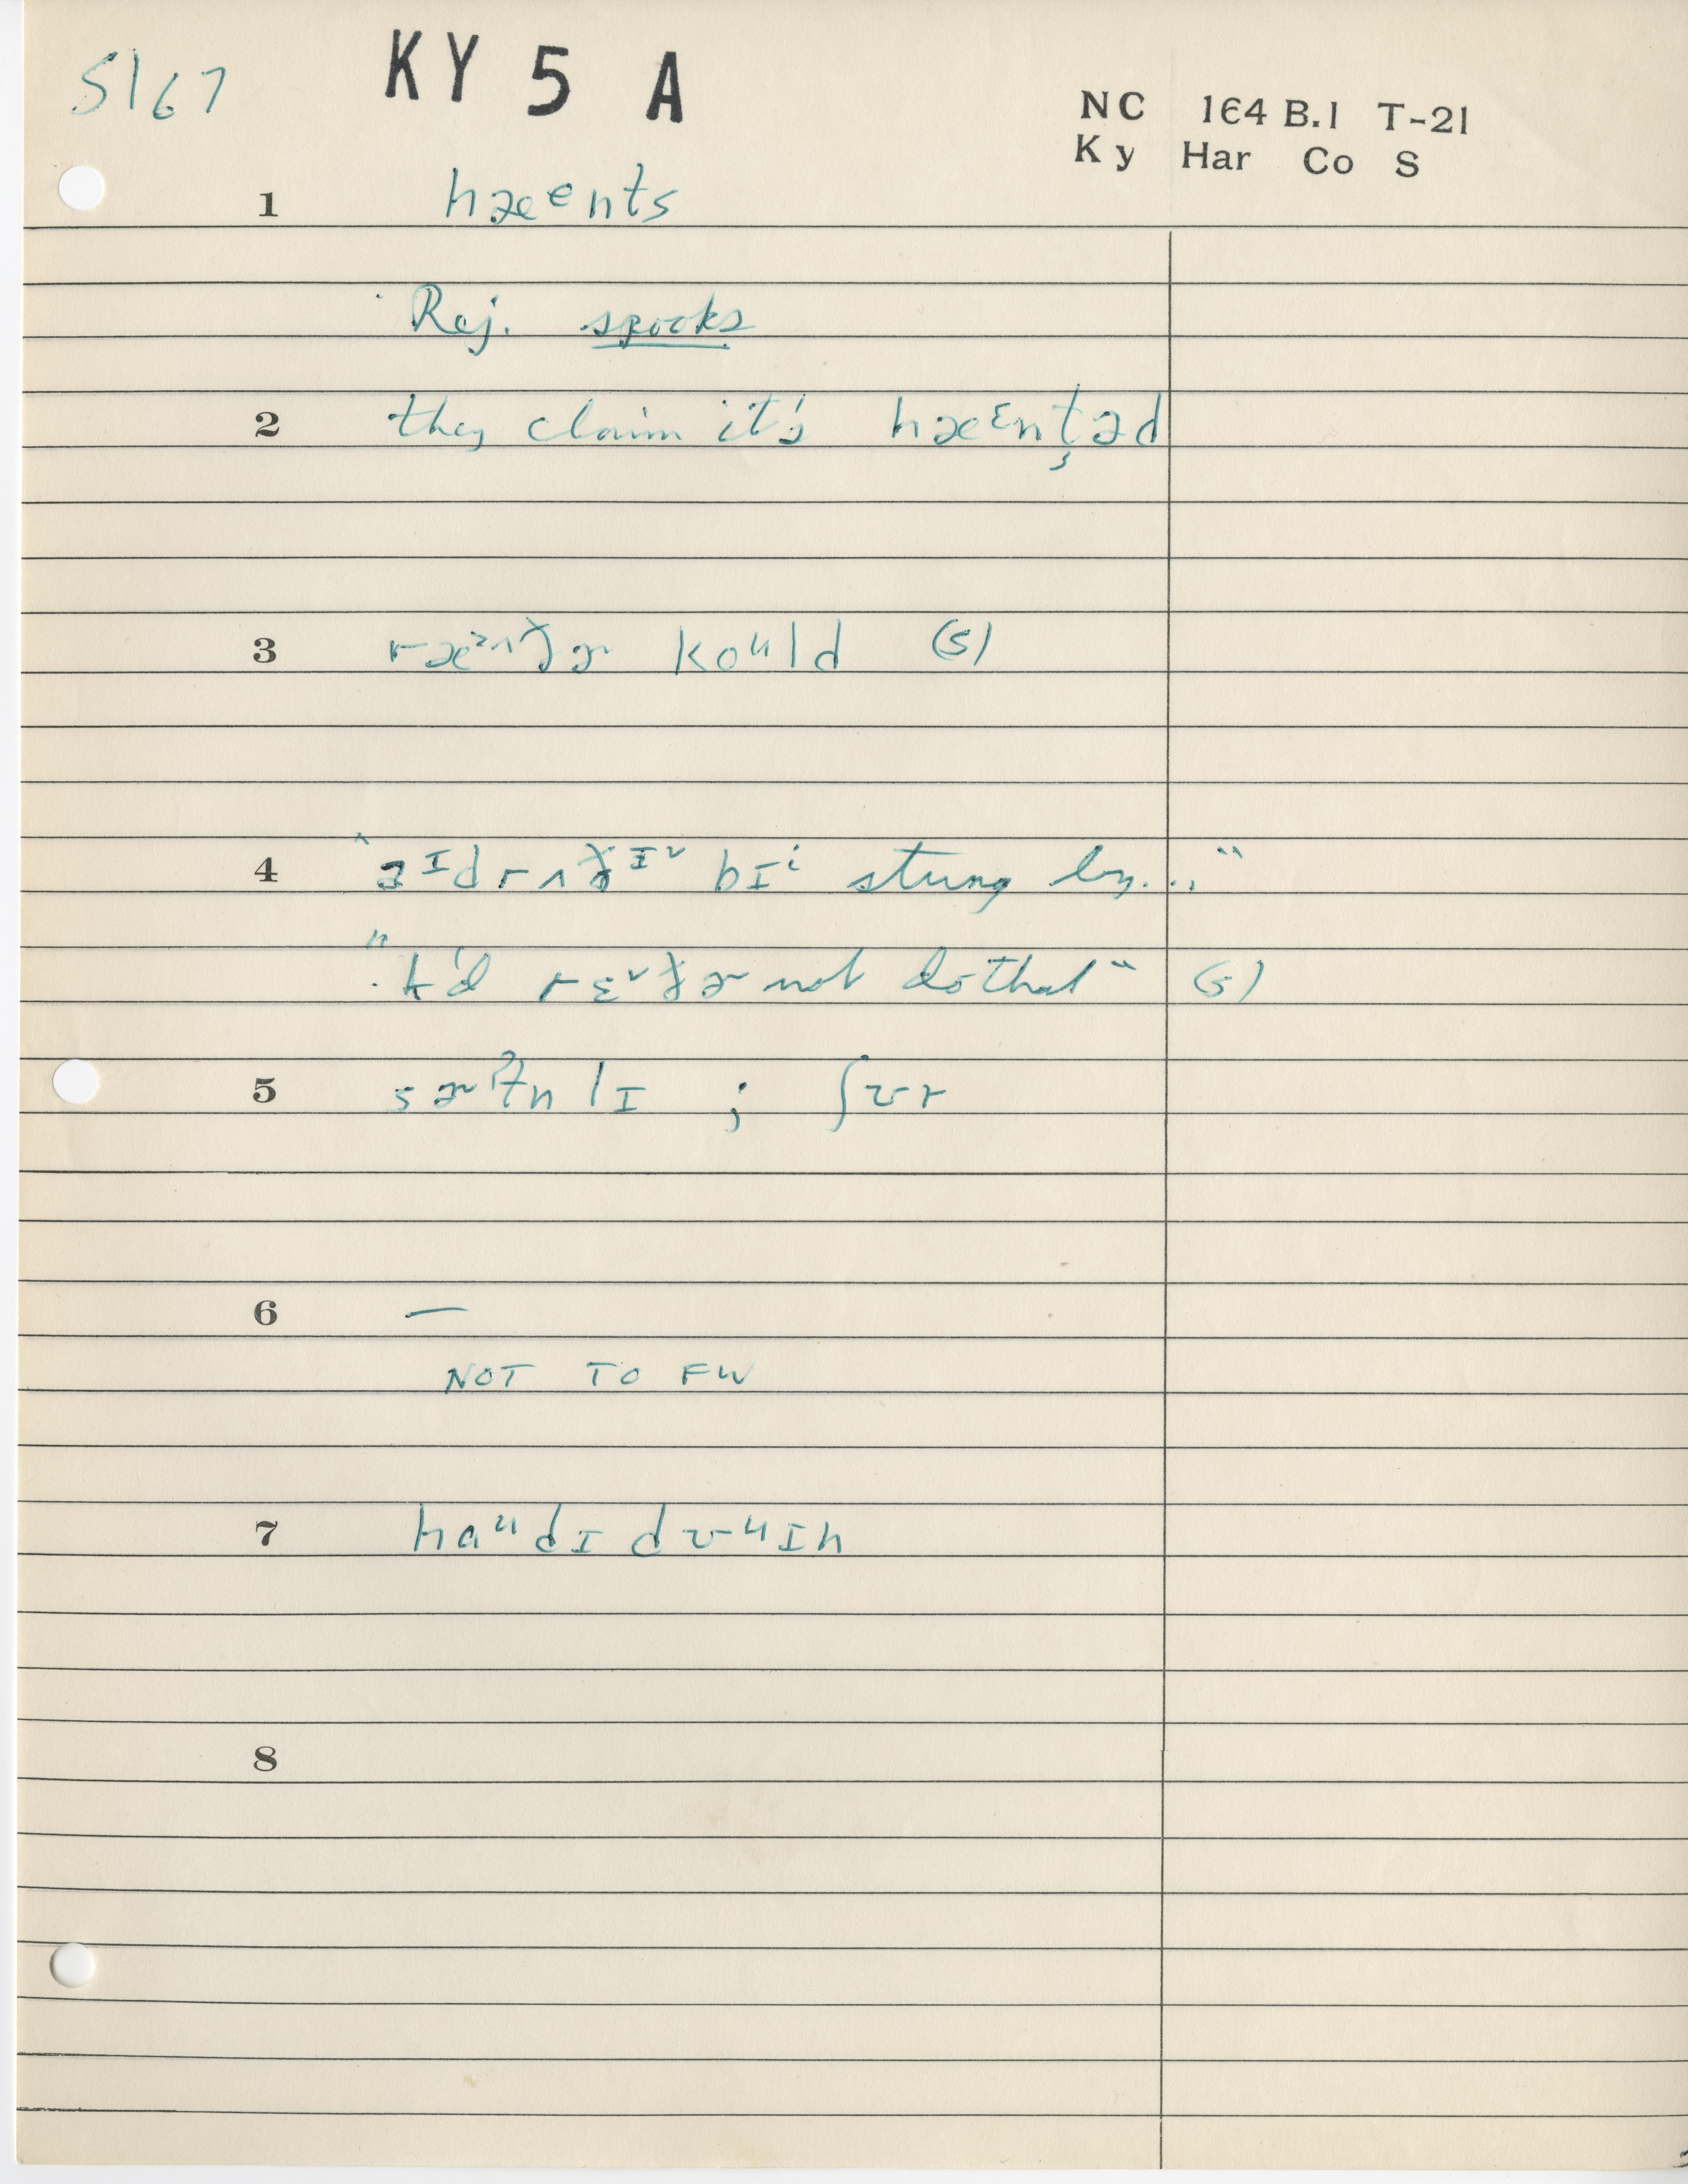 5167 KY 5 A
NC 164 B.1 T-21
Ky Har Co S
1 hæᵉnts
Rej. spooks
2 they claim it's hæᵋnt̬əd
3 ræᵊ^ðɚ koᵘld (s)
4 "əᴵd rʌðᴵ˅ bɪⁱ stung by..."
"I'd rɛ˅ðɚ not do that" (s)
5 sɚˀtn lɪ ; ʃʊr
6 —
NOT TO FW
7 haᵘdɪ dʊᵘɪn
8